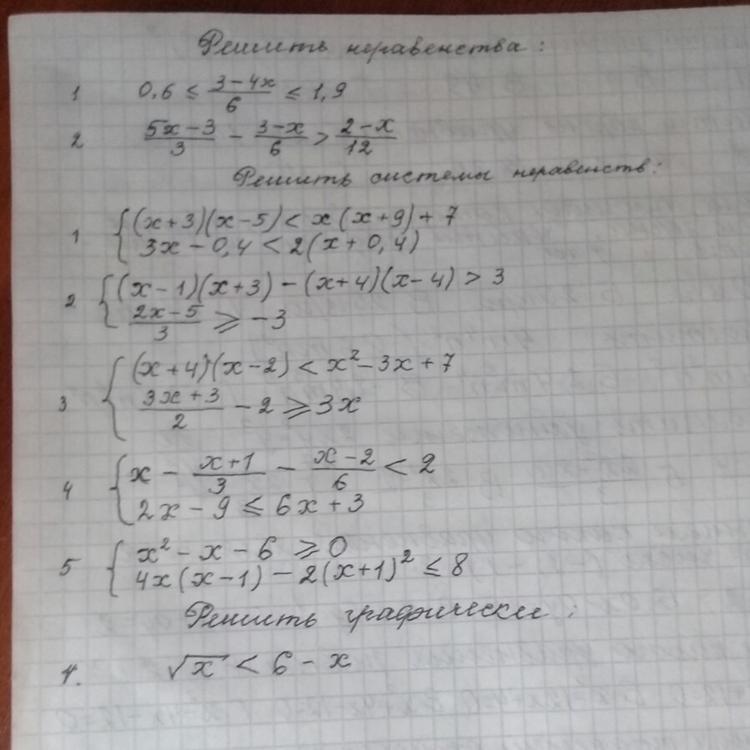 Решить неравенства:
1 0,6 ≤ (3-4x)/6 ≤ 1,9
2 (5x-3)/3 - (3-x)/6 > (2-x)/12
Решить системы неравенств:
1 { (x+3)(x-5) < x(x+9)+7
3x-0,4 < 2(x+0,4)
2 { (x-1)(x+3) - (x+4)(x-4) > 3
(2x-5)/3 ⩾ -3
3 { (x+4)(x-2) < x²-3x+7
(3x+3)/2 - 2 ⩾ 3x
4 { x - (x+1)/3 - (x-2)/6 < 2
2x-9 ≤ 6x+3
5 { x²-x-6 ⩾ 0
4x(x-1) - 2(x+1)² ≤ 8
Решить графически:
1. √x < 6-x